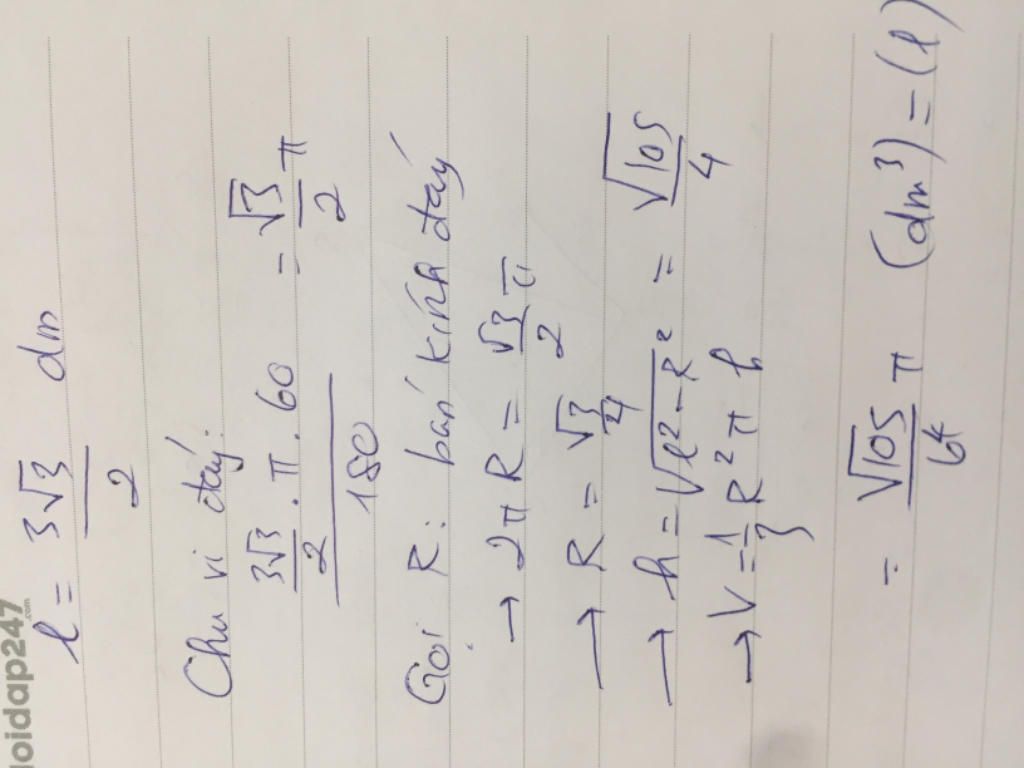 loidap247
.com
l = 3√3/2 dm
Chu vi đáy:
(3√3/2 . π . 60)/180 = √3/2 π
Gọi R: bán kính đáy
→ 2πR = √3/2 π
→ R = √3/4
→ h = √(l² - R²) = √105/4
→ V = 1/3 R² π h
= √105/64 π (dm³) = (l)